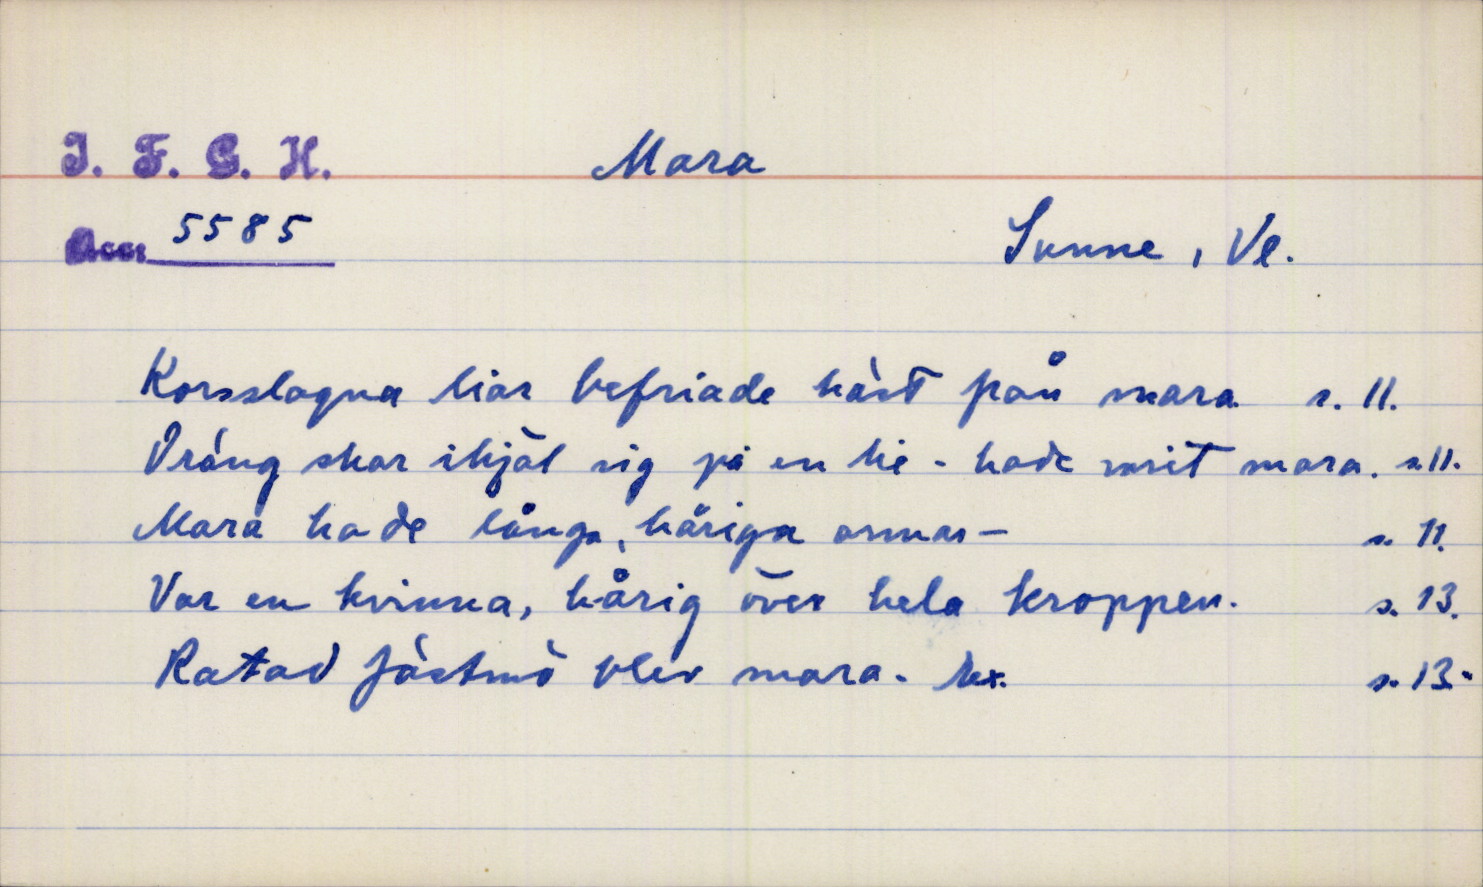 I. F. G. H.
Mara
Acc. 5585
Sunne, Vl.
Korsslagna liar befriade häst från mara s. 11.
Dräng skar ihjäl sig på en lie - hade varit mara. s. 11.
Mara hade långa, håriga armar - s. 11.
Var en kvinna, hårig över hela kroppen. s. 13.
Ratad fästmö blev mara. s. 13.